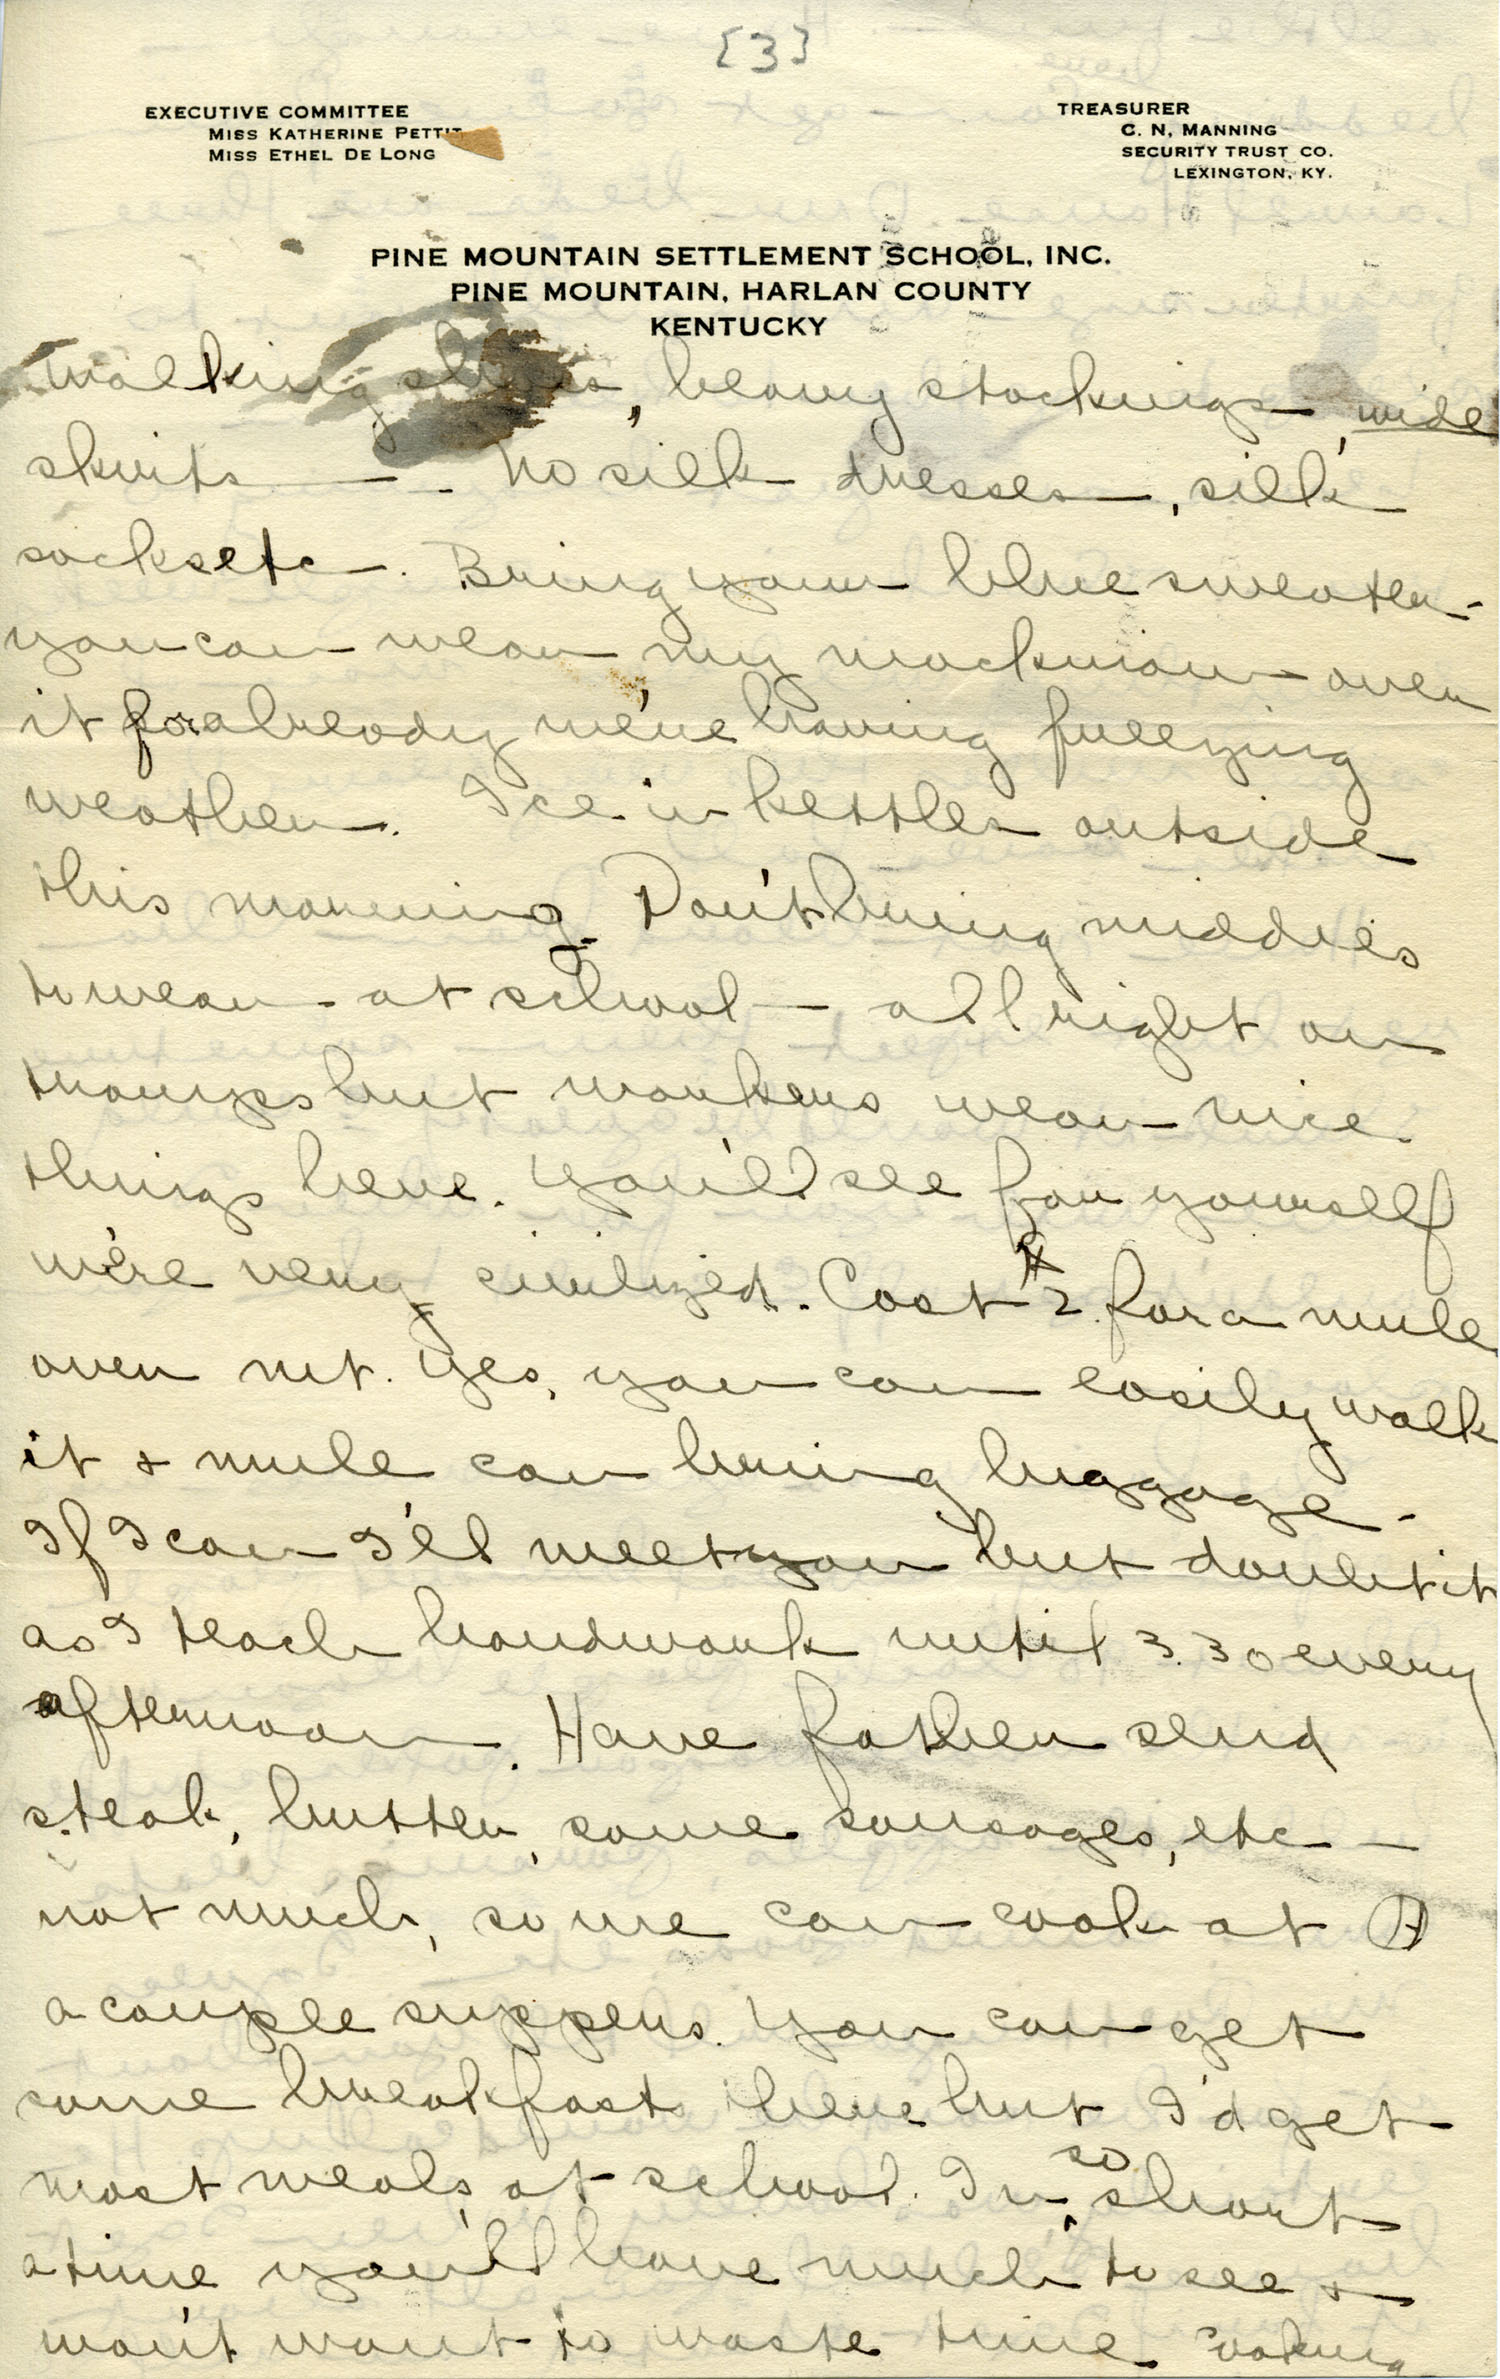 [3]
EXECUTIVE COMMITTEE
MISS KATHERINE PETTIT
MISS ETHEL DE LONG
TREASURER
C. N. MANNING
SECURITY TRUST CO.
LEXINGTON, KY.
PINE MOUNTAIN SETTLEMENT SCHOOL, INC.
PINE MOUNTAIN, HARLAN COUNTY
KENTUCKY
walking shoes, heavy stockings, wide
skirts —. No silk dresses, silk
socks etc. Bring your blue sweater -
you can wear my mackinaw over
it for already we've having freezing
weather. Ice in kettles outside
this morning. Don't bring middies
to wear at school — all right on
tramps but workers wear nice
things here. You'll see for yourself
we're very civilized. Cost $2. for a mule
over mt. Yes, you can easily walk
it & mule can bring luggage.
If I can I'll meet you but doubt it
as I teach handwork until 3.30 every
afternoon. Have father send
steak, butter, some sausages, etc —
not much, so we can cook at
a couple suppers. You can get
some breakfasts here but I'd get
most meals at school. In so short
a time you'll have much to see &
won't want to waste time cooking